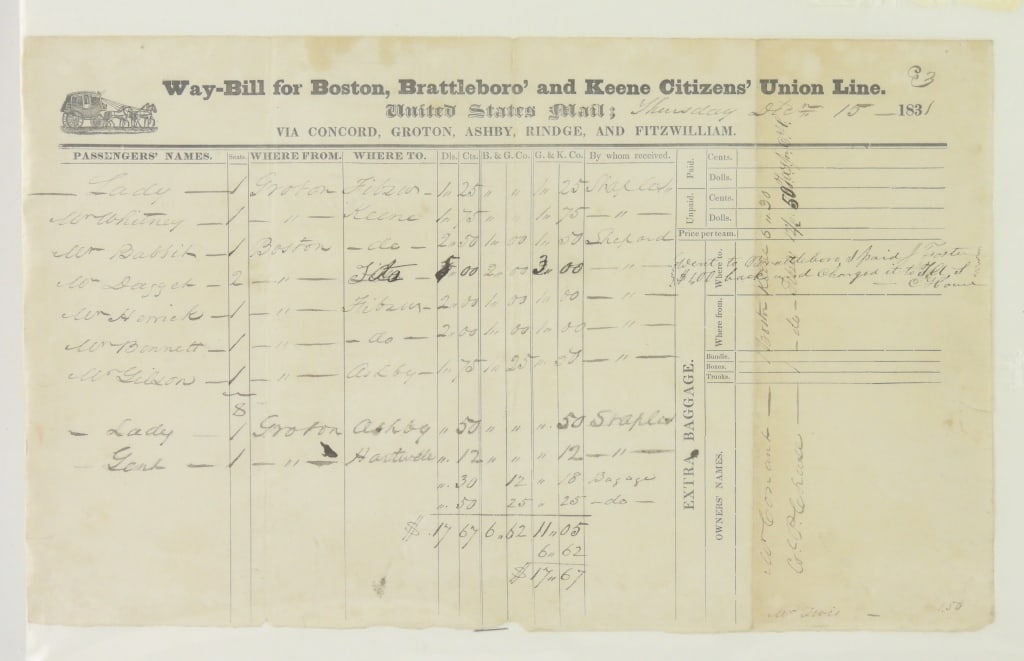 83
Way-Bill for Boston, Brattleboro' and Keene Citizens' Union Line.
United States Mail; Thursday Dec 15 — 1831
VIA CONCORD, GROTON, ASHBY, RINDGE, AND FITZWILLIAM.
PASSENGERS' NAMES. Seats. WHERE FROM. WHERE TO. Dls. Cts. B. & G. Co. G. & K. Co. By whom received.
— Lady — 1 Groton Fitzw — 1 " 25 " " 1 " 25 Staples
Mr Whitney — 1 — " — Keene 1 " 75 " 1 " 75 — " —
Mr Babbit 1 Boston — do — 2 " 50 1 " 00 1 " 50 Shepard
Mr Dagget — 2 — " — Fitz 5 " 00 2 " 00 3 " 00 — " —
Mr Herrick — 1 — " — Fitzw — 2 " 00 1 " 00 1 " 00 — " —
Mr Bennett — 1 — " — — do — 2 " 00 1 " 00 1 " 00 — " —
Mr Gibson — 1 — " — Ashby — 1 " 75 1 " 25 " 50 — " —
8
— Lady — 1 Groton Ashby " 50 " " " 50 Staples
— Gent — 1 — " — Hartwell " 12 " " " 12 — " —
" 30 12 " 18 Bagage
" 50 25 " 25 — do —
$ 17 67 6 " 62 11 " 05
6 " 62
$ 17 " 67
Paid.
Cents.
Dolls.
Unpaid.
Cents.
Dolls.
Price per team.
Where to.
went to Brattleboro & paid J Foster
$4,00 back and charged it to
Where from.
Bundle.
Boxes.
Trunks.
EXTRA BAGGAGE.
OWNERS' NAMES.
Mr Conant — North Keene
Chase — do —
50
Mr — 150